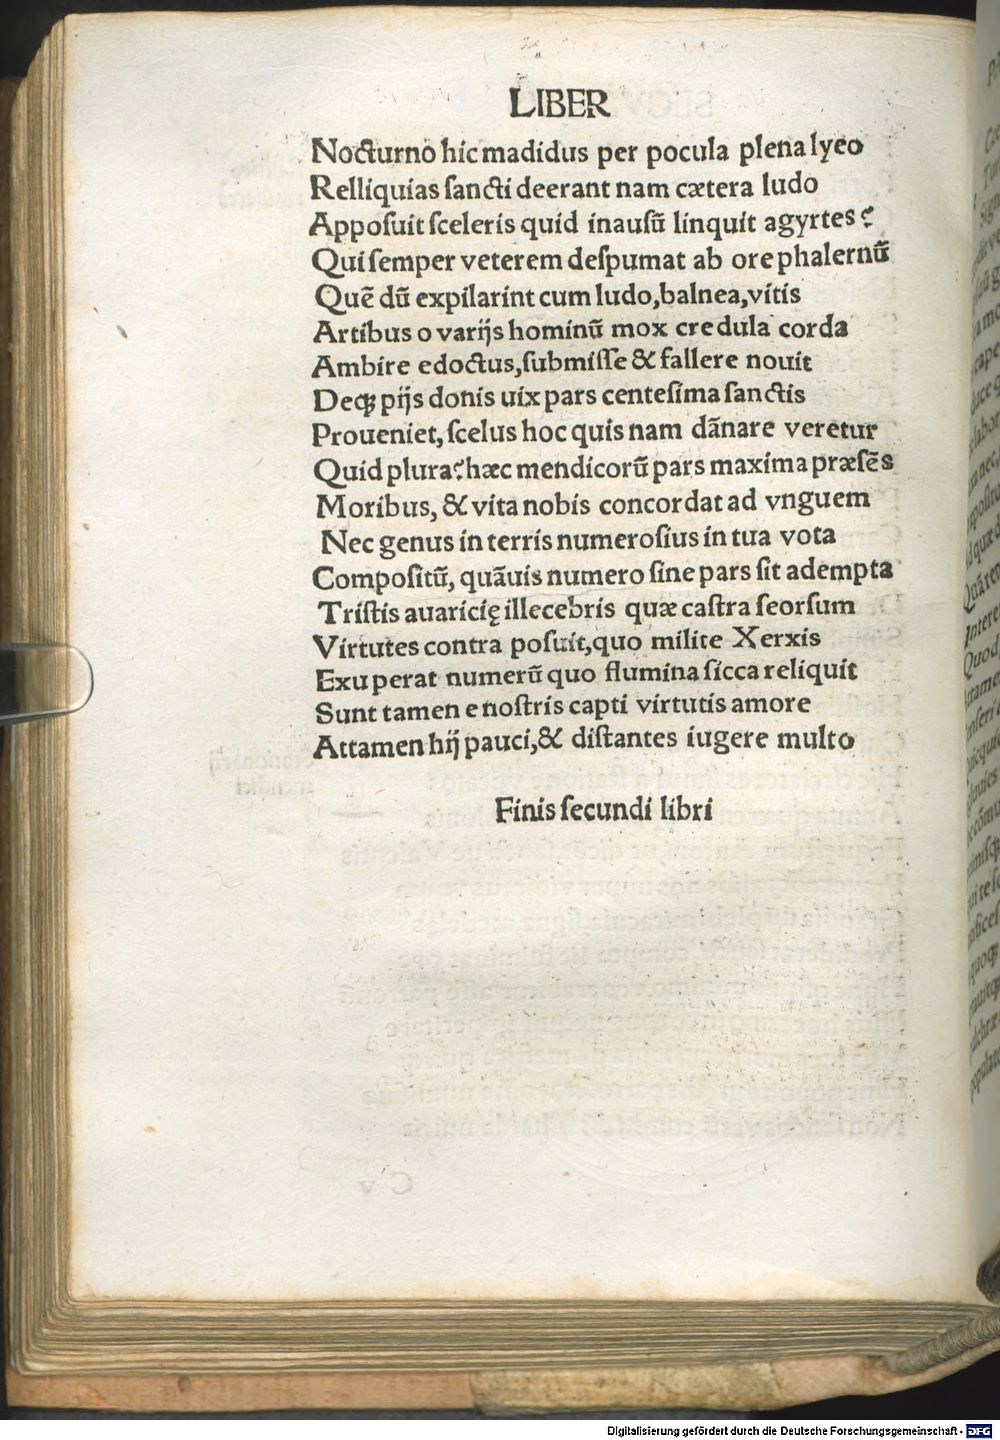 LIBER
Nocturno hic madidus per pocula plena lyeo
Relliquias ſancti deerant nam cætera ludo
Appoſuit ſceleris quid inauſū linquit agyrtes?
Qui ſemper veterem deſpumat ab ore phalernū
Quē dū expilarint cum ludo, balnea, vitis
Artibus o varijs hominū mox credula corda
Ambire edoctus, ſubmiſſe & fallere nouit
Deqꝫ pijs donis uix pars centeſima ſanctis
Proueniet, ſcelus hoc quis nam dānare veretur
Quid plura? hæc mendicorū pars maxima præſēs
Moribus, & vita nobis concordat ad vnguem
Nec genus in terris numeroſius in tua vota
Compoſitū, quāuis numero ſine pars ſit adempta
Triſtis auaricię illecebris quæ caſtra ſeorſum
Virtutes contra poſuit, quo milite Xerxis
Exuperat numerū quo flumina ſicca reliquit
Sunt tamen e noſtris capti virtutis amore
Attamen hij pauci, & diſtantes iugere multo
Finis ſecundi libri
Digitalisierung gefördert durch die Deutsche Forschungsgemeinschaft - DFG